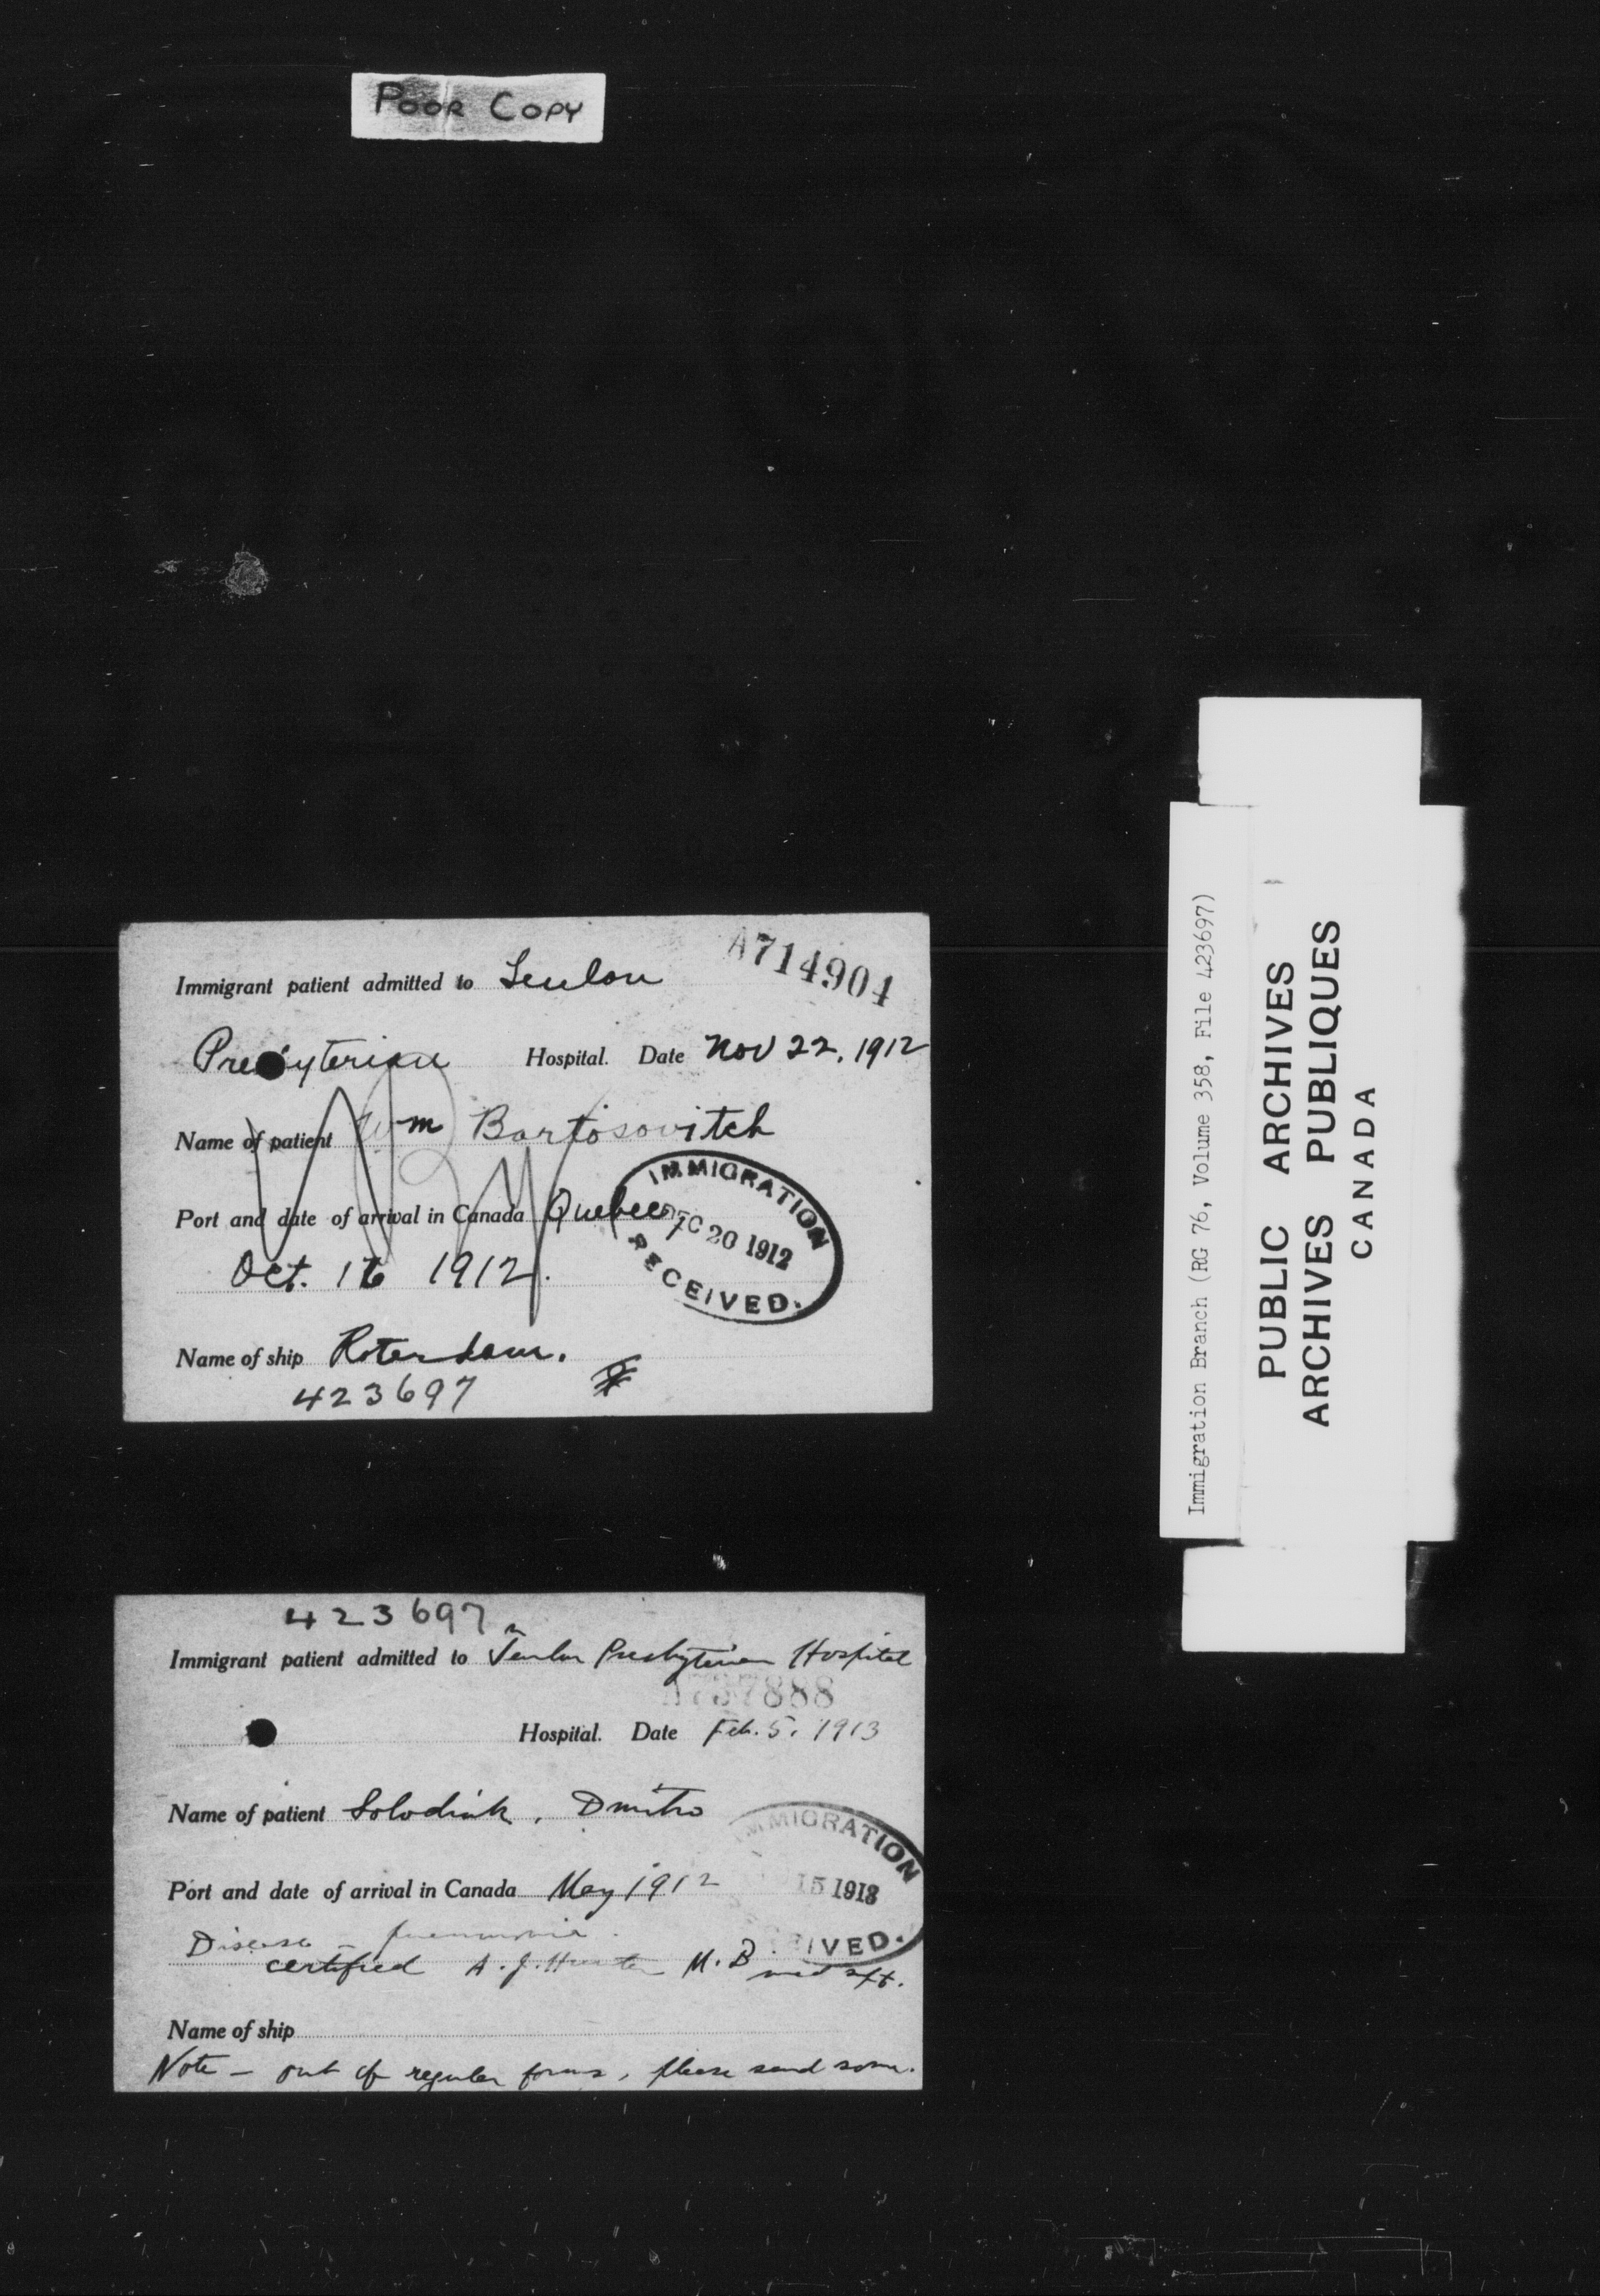 POOR COPY
A714904
Immigrant patient admitted to Teulon
Presbyterian Hospital. Date Nov 22, 1912
Name of patient Wm Bartosovitch
Port and date of arrival in Canada Quebec
Oct. 16 1912.
IMMIGRATION
DEC 20 1912
RECEIVED.
Name of ship Roterdam.
423697
423697
Immigrant patient admitted to Teulon Presbyterian Hospital
Hospital. Date Feb. 5, 1913
Name of patient Solodiuk, Dmitro
Port and date of arrival in Canada May 1912
IMMIGRATION
15 1913
Disease - pneumonia.
certified A. J. Hunter M. B med spt.
Name of ship
Note - out of regular forms, please send some.
Immigration Branch (RG 76, Volume 358, File 423697)
PUBLIC ARCHIVES
ARCHIVES PUBLIQUES
CANADA